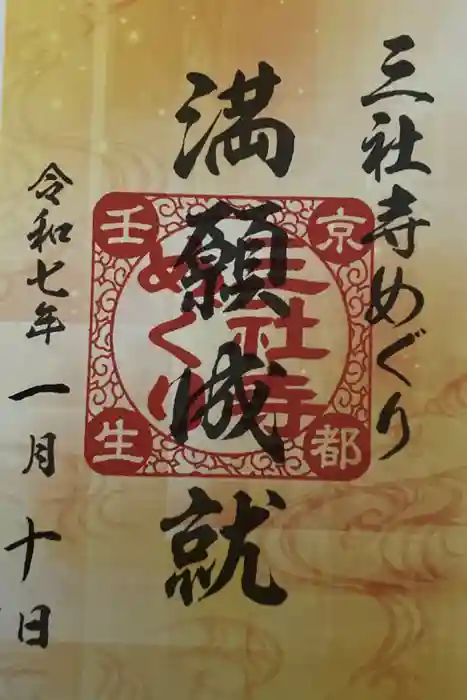 三社寺めぐり
満願成就
京都
三社寺
めぐり
壬生
令和七年一月十日